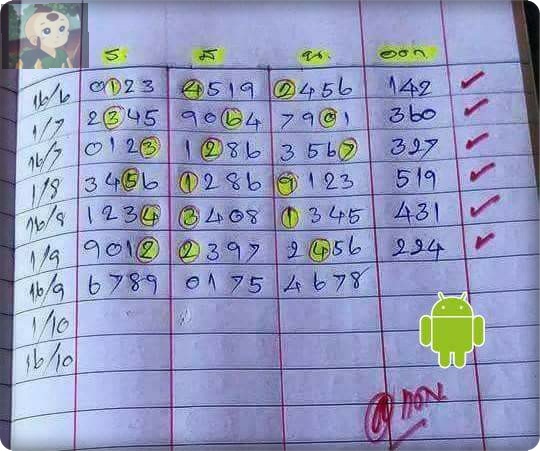 ร. สิ น. ออก
16/6 0123 4519 2456 142 ✓
1/7 2345 9064 7901 360 ✓
16/7 0123 1286 3567 327 ✓
1/8 3456 1286 9123 519 ✓
16/8 1234 3408 1345 431 ✓
1/9 9012 2397 2456 224 ✓
16/9 6789 0175 4678
1/10
16/10